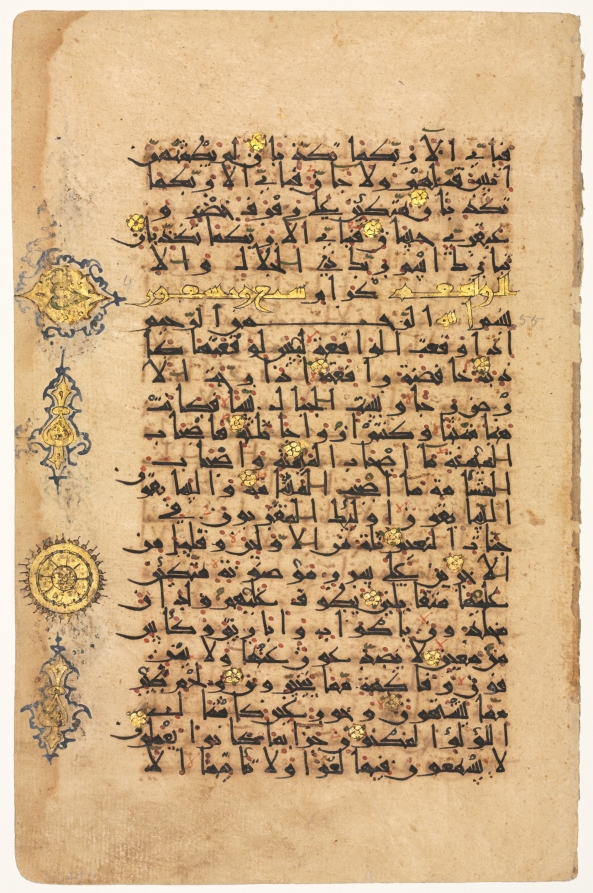 فباي الا ربكما تكذبان لم يطمثهن
انس قبلهم ولا جان فباي الا ربكما
تكذبان متكئين على رفرف خضر و
عبقري حسان فباي الا ربكما تكذبان
تبارك اسم ربك ذي الجلال والا
الواقعة كرام سبع وتسعون
بسم الله الرحمن الرحيم
اذا وقعت الواقعة ليس لوقعتها كا
ذبة خافضة رافعة اذا رجت الا
رض رجا وبست الجبال بسا فكانت
هباء منبثا وكنتم ازواجا ثلثة فاصحاب
الميمنة ما اصحاب الميمنة واصحاب
المشئمة ما اصحب المشئمة والسابقون
السابقون اولئك المقربون في
جنات النعيم ثلة من الاولين وقليل من
الاخرين على سرر موضونة متكئين
عليها متقابلين يطوف عليهم ولدان
مخلدون باكواب واباريق وكاس
من معين لا يصدعون عنها ولا ينز
فون وفاكهة مما يتخيرون ولحم طير
مما يشتهون وحور عين كامثال
اللؤلؤ المكنون جزاء بما كانوا يعملون
لا يسمعون فيها لغوا ولا تاثيما الا